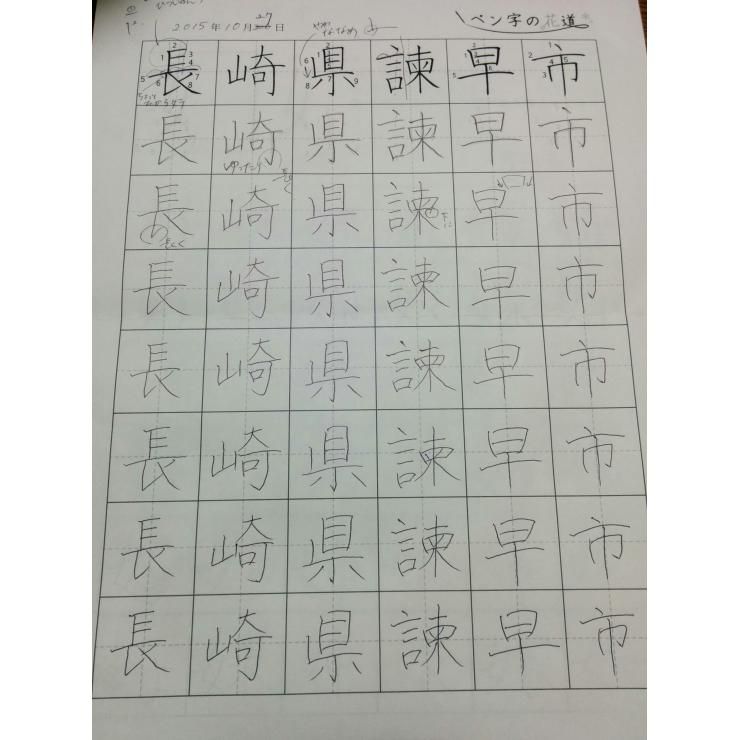 2015年10月27日
ペン字の花道
長崎県諫早市
長崎県諫早市
ゆったり
長く
長崎県諫早市
長崎県諫早市
長崎県諫早市
長崎県諫早市
長崎県諫早市
長崎県諫早市